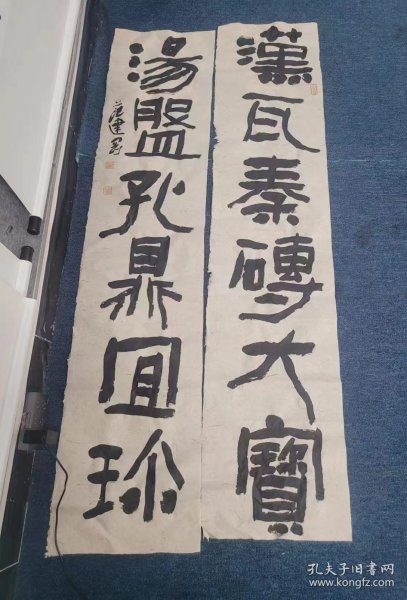 漢瓦秦磚大寶
湯盤孔鼎宜珍
孔夫子旧书网
www.kongfz.com